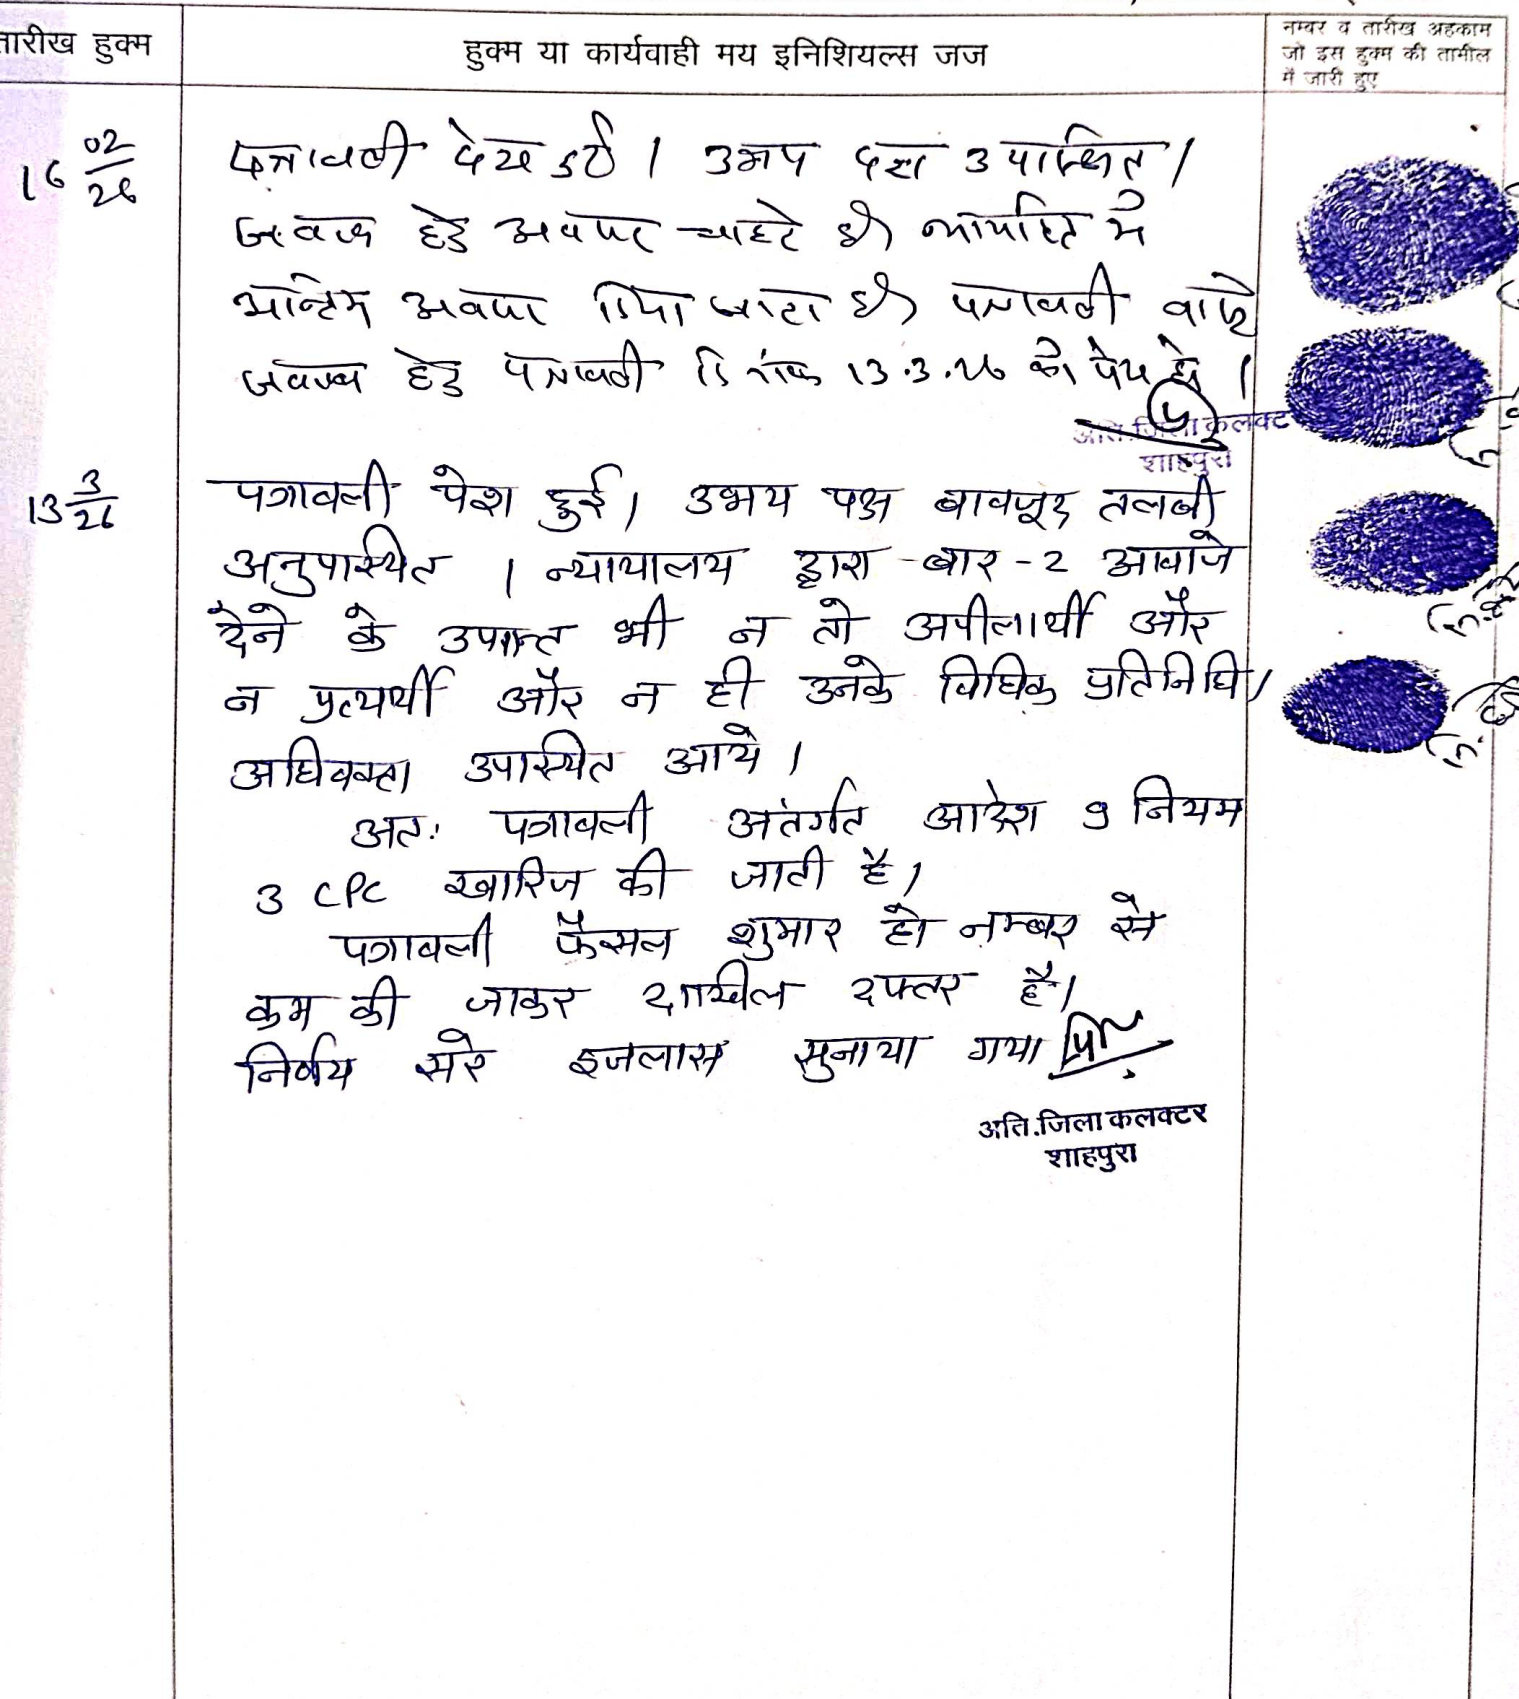 तारीख हुक्म
हुक्म या कार्यवाही मय इनिशियल्स जज
नम्बर व तारीख अहकाम
जो इस हुक्म की तामील
में जारी हुए
16 02/26
पत्रावली पेश हुई । उभय पक्ष उपस्थित ।
जवाब हेतु अवसर चाहते है। न्यायहित मे
अन्तिम अवसर दिया जाता है। पत्रावली वास्ते
जवाब हेतु पत्रावली दिनांक 13.3.26 को पेश हो ।
अति.जिला कलक्ट
शाहपुरा
13 3/26
पत्रावली पेश हुई। उभय पक्ष बावजूद तलबी
अनुपस्थित । न्यायालय द्वारा बार-2 आवाजे
देने के उपरान्त भी न तो अपीलार्थी और
न प्रत्यर्थी और न ही उनके विधिक प्रतिनिधि/
अधिवक्ता उपस्थित आये ।
अतः पत्रावली अंतर्गत आदेश 9 नियम
3 CPC खारिज की जाती है।
पत्रावली फैसल शुमार हो नम्बर से
कम की जाकर दाखिल दफ्तर है।
निर्णय सरे इजलास सुनाया गया
अति.जिला कलक्टर
शाहपुरा